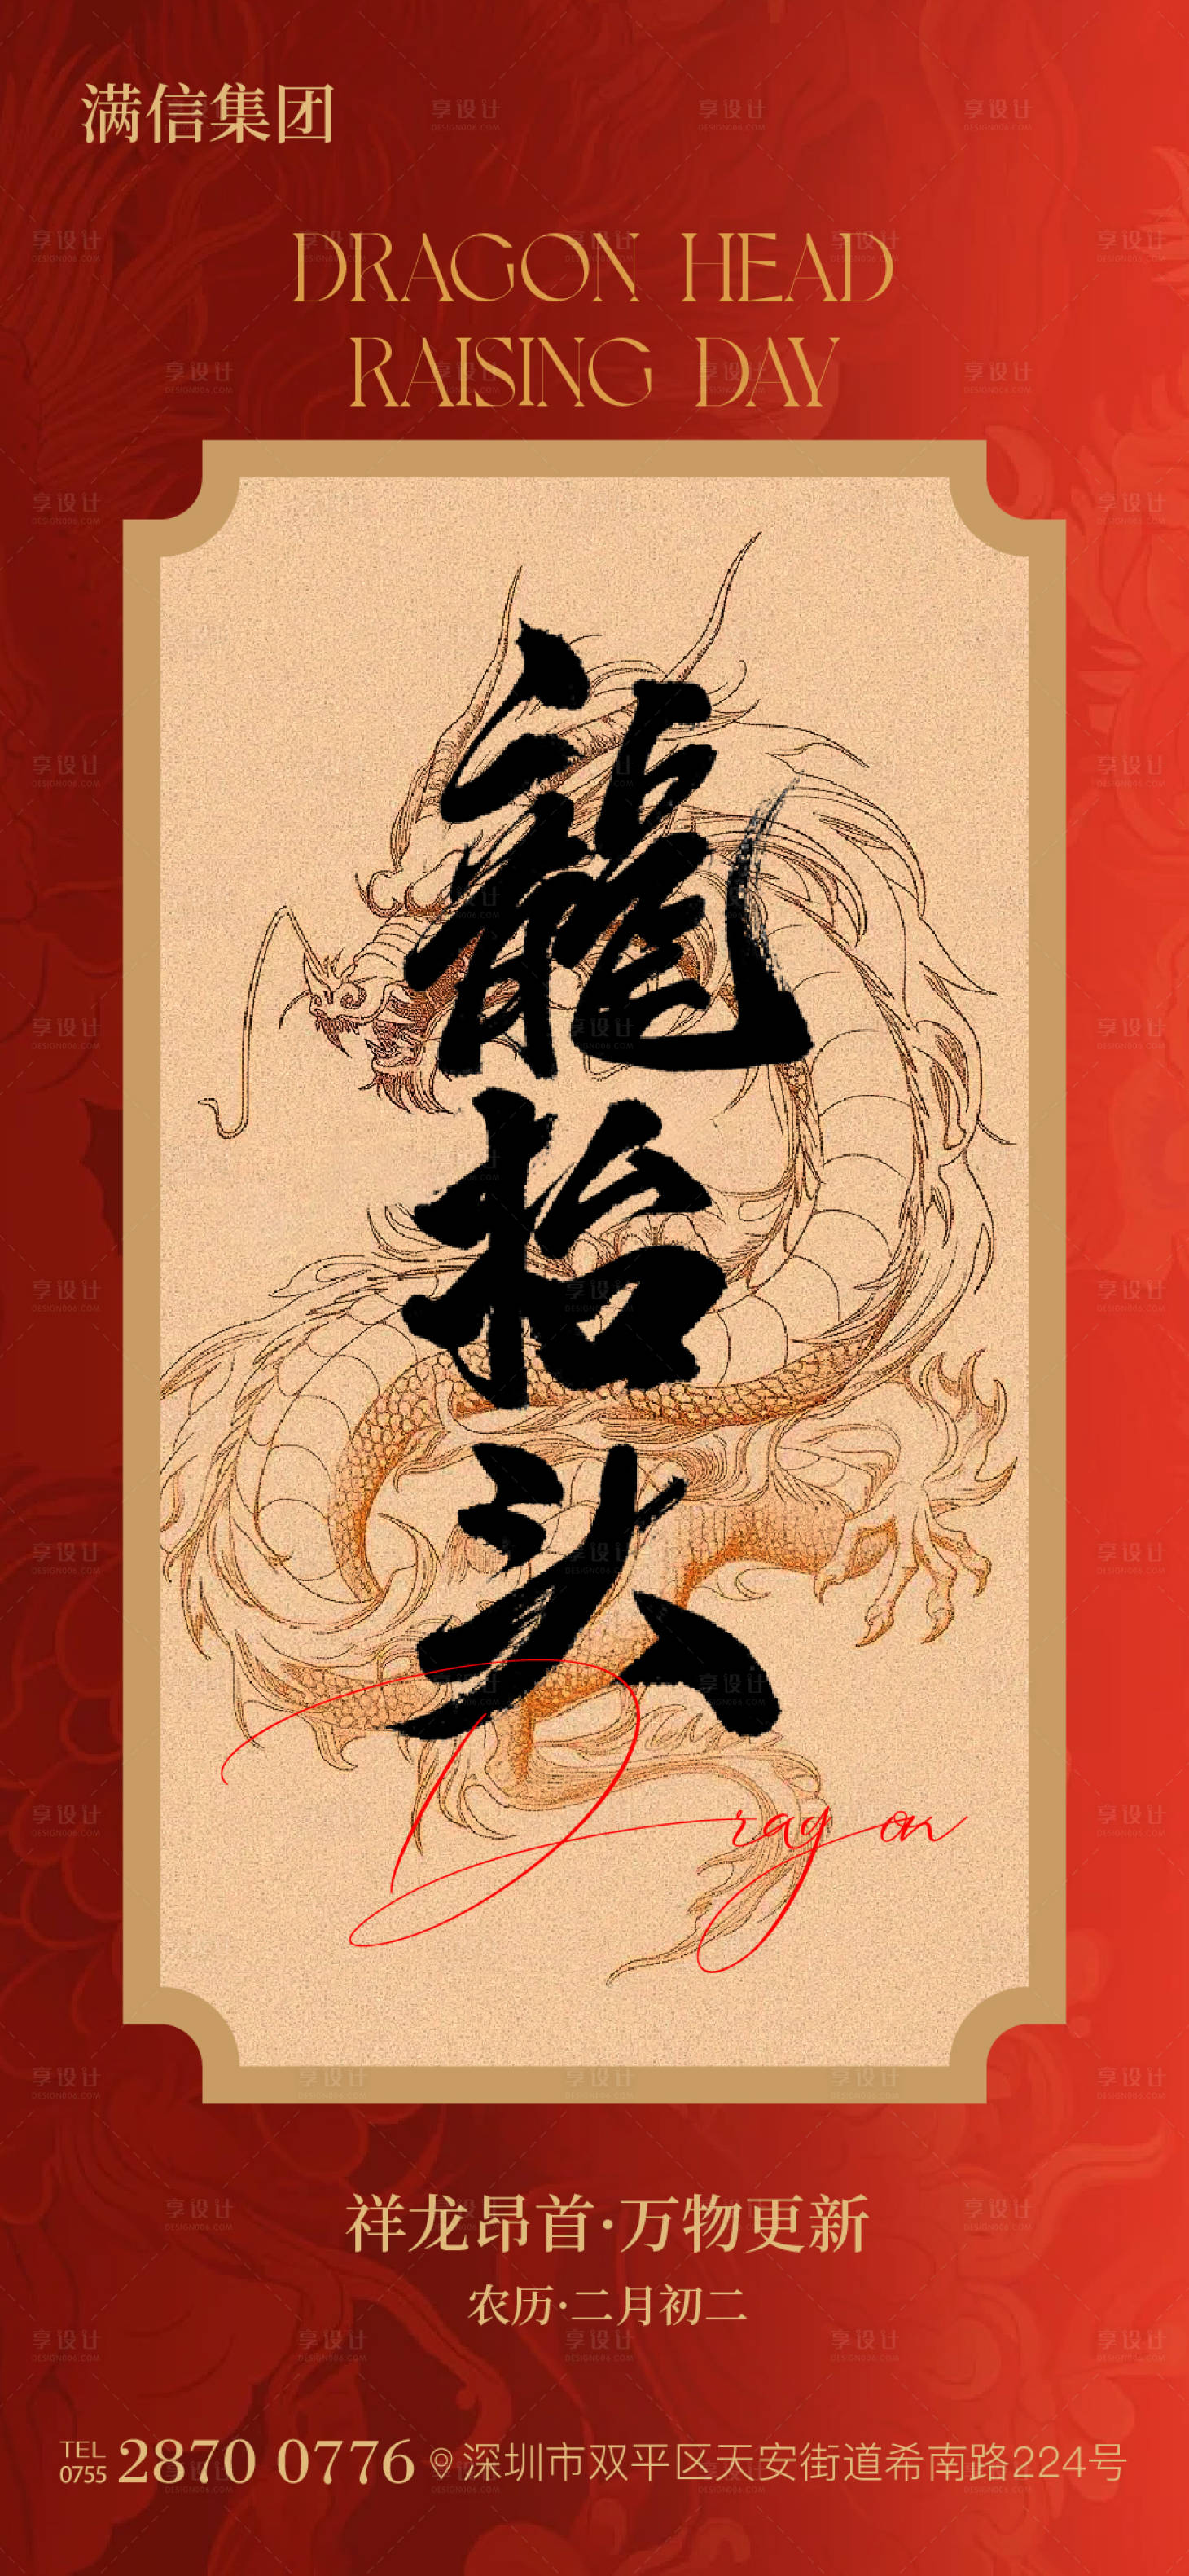 满信集团
DRAGON HEAD
RAISING DAY
龍抬头
Dragon
祥龙昂首·万物更新
农历·二月初二
TEL 0755 2870 0776 深圳市双平区天安街道希南路224号
享设计
DESIGN006.COM